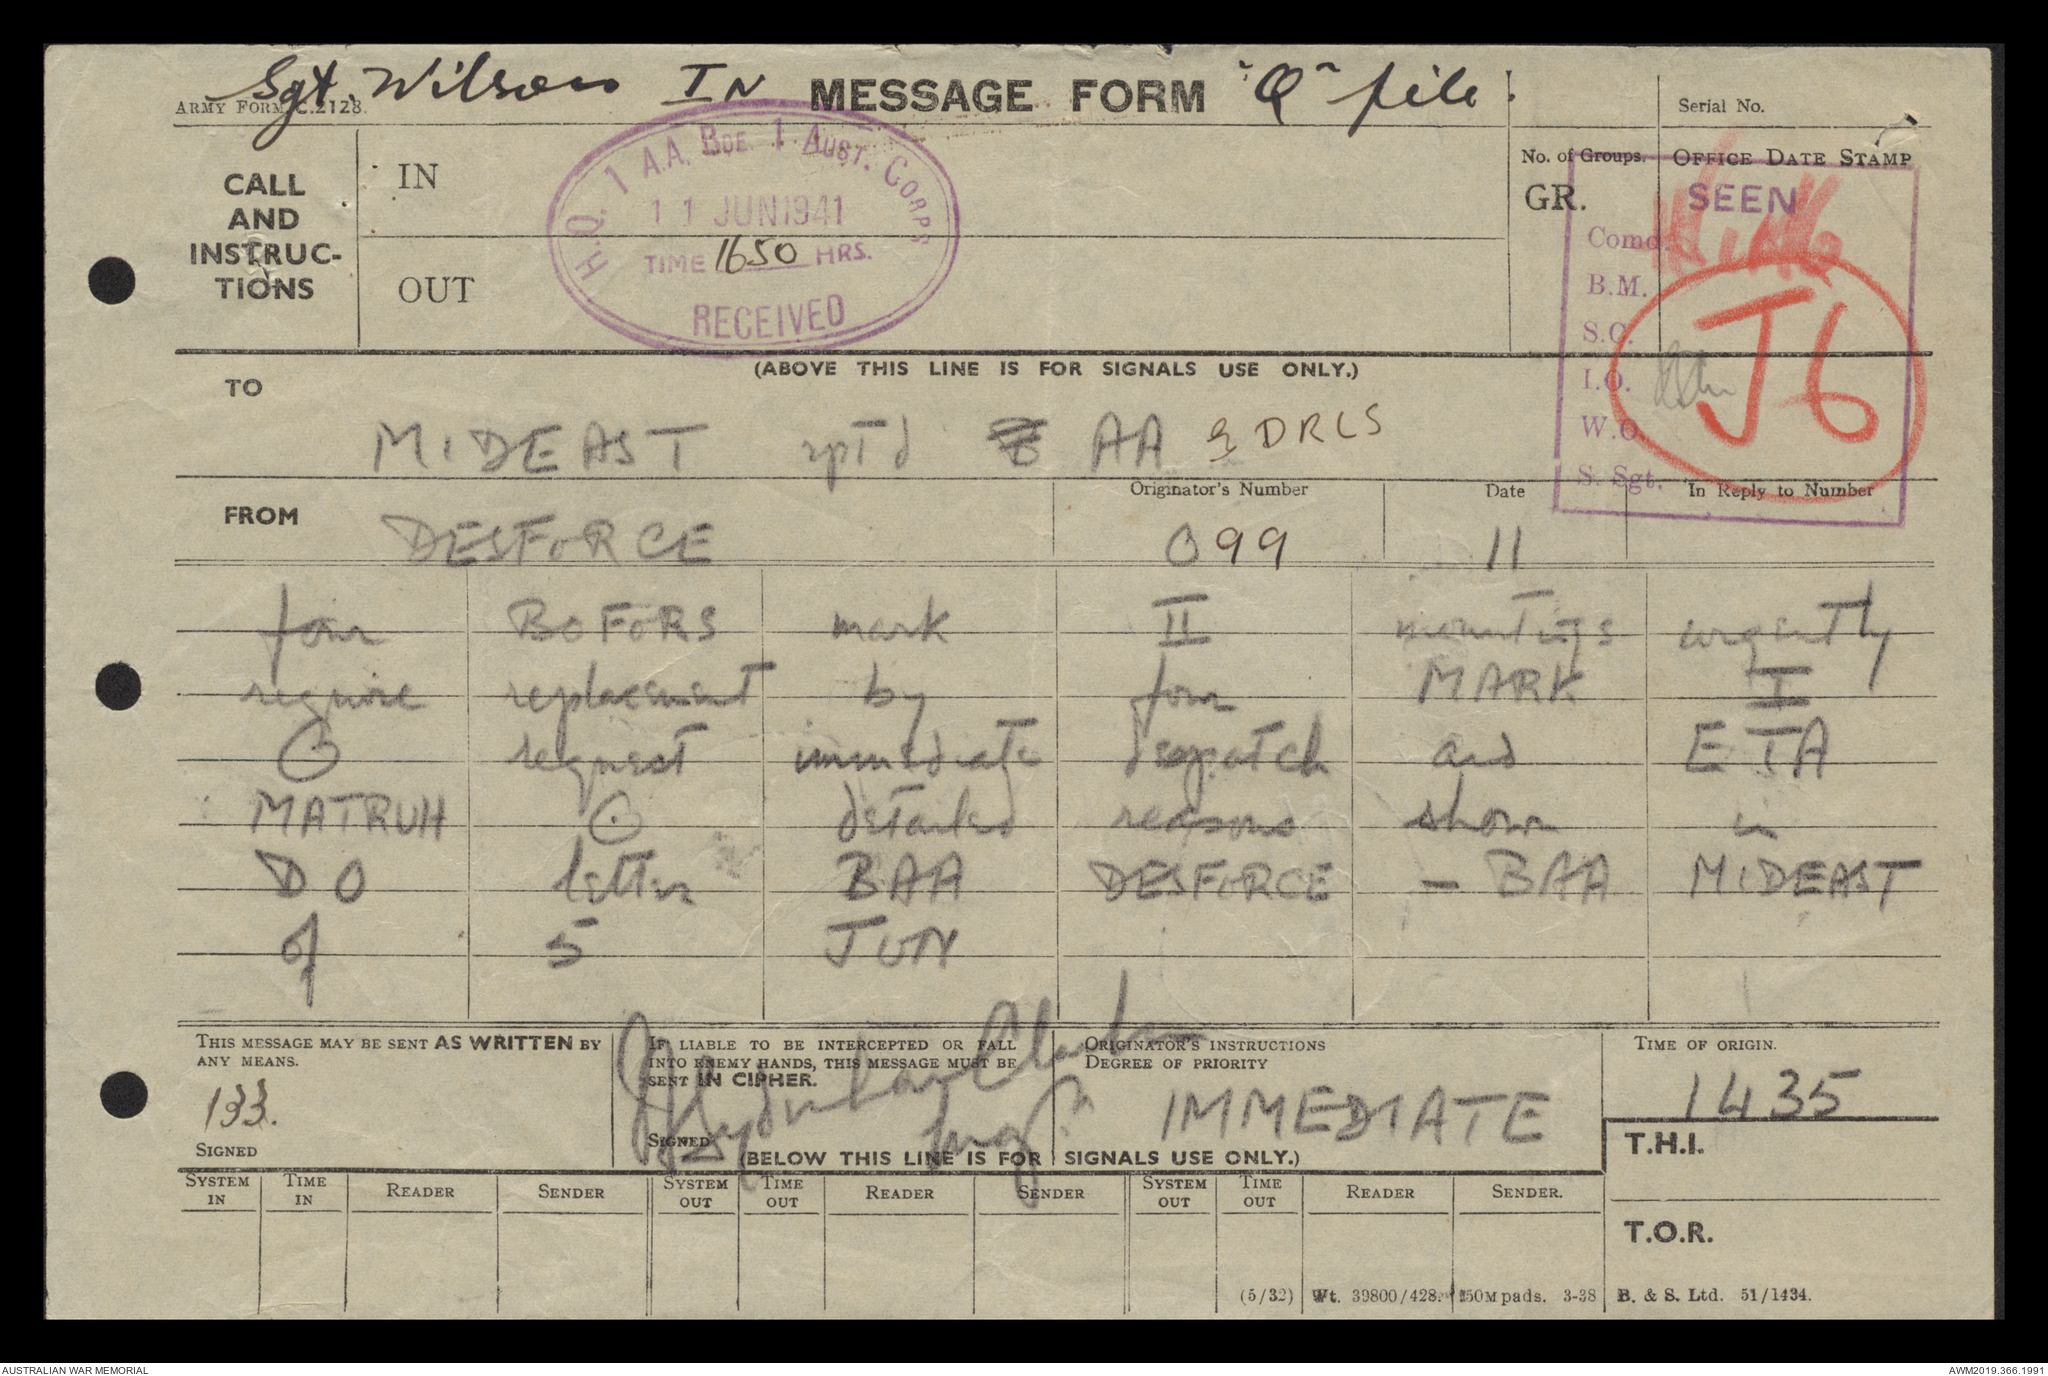 Sgt. Wilson IN MESSAGE FORM "Q" file.
ARMY FORM C.2128.
Serial No.
CALL AND INSTRUC-TIONS
IN
OUT
H.Q. 1 A.A. BDE. 1 AUST. CORPS
11 JUN 1941
TIME 1650 HRS.
RECEIVED
No. of Groups.
GR.
OFFICE DATE STAMP
SEEN
Comd.
B.M.
S.C.
I.O.
W.O.
S. Sgt.
J6
(ABOVE THIS LINE IS FOR SIGNALS USE ONLY.)
TO
MIDEAST rptd AA & DRLS
FROM
DESFORCE
Originator's Number
099
Date
11
In Reply to Number
four BOFORS mark II mountings urgently
require replacement by four MARK I
⊙ request immediate despatch and ETA
MATRUH ⊙ detailed reasons shown in
DO letter BAA DESFORCE - BAA MIDEAST
of 5 JUN
THIS MESSAGE MAY BE SENT AS WRITTEN BY
ANY MEANS.
133.
SIGNED
IF LIABLE TO BE INTERCEPTED OR FALL
INTO ENEMY HANDS, THIS MESSAGE MUST BE
SENT IN CIPHER.
SIGNED
ORIGINATOR'S INSTRUCTIONS
DEGREE OF PRIORITY
IMMEDIATE
TIME OF ORIGIN.
1435
T.H.I.
(BELOW THIS LINE IS FOR SIGNALS USE ONLY.)
SYSTEM IN TIME IN READER SENDER SYSTEM OUT TIME OUT READER SENDER SYSTEM OUT TIME OUT READER SENDER.
T.O.R.
(5/32) Wt. 39800/428. 150M pads. 3-38 B. & S. Ltd. 51/1434.
AUSTRALIAN WAR MEMORIAL
AWM2019.366.1991